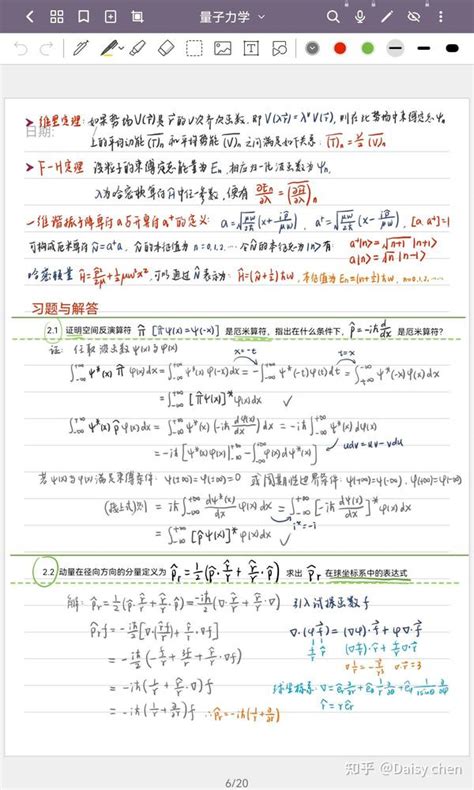 量子力学
日期:
维里定理: 如果势场V(r⃗)是r⃗的ν次齐次函数, 即V(λr⃗)=λ^νV(r⃗), 则在此势场中束缚定态ψn
上的平均动能(T̄)n和平均势能(V̄)n之间满足如下关系 (T̄)n=ν/2(V̄)n
F-H定理 设粒子的束缚定态能量为En, 相应归一化波函数为ψn,
λ为哈密顿算符Ĥ中任一参数, 便有 ∂En/∂λ=(∂Ĥ/∂λ)n
一维谐振子降算符a与升算符a⁺的定义: a=√(μω/2ħ)(x+ip̂/μω), a⁺=√(μω/2ħ)(x-ip̂/μω), [a,a⁺]=1
可构成厄米算符n̂=a⁺a, n̂的本征值为n=0,1,2,⋯ 令n̂的本征态为|n>有 a⁺|n>=√(n+1)|n+1>
a|n>=√n|n-1>
哈密顿量 Ĥ=p̂²/2μ+½μω²x², 可以通过n̂表示为: Ĥ=(n̂+½)ħω, 本征值为En=(n+½)ħω, n=0,1,2,⋯
习题与解答
2.1 证明空间反演算符 π̂ [π̂ψ(x)=ψ(-x)] 是厄米算符, 指出在什么条件下, p̂=-iħ d/dx 是厄米算符?
证: 任取波函数ψ(x)与φ(x)
x=-t t=x
∫_{-∞}^{+∞}ψ*(x)π̂φ(x)dx=∫_{-∞}^{+∞}ψ*(x)φ(-x)dx=-∫_{+∞}^{-∞}ψ*(-t)φ(t)dt=∫_{-∞}^{+∞}ψ*(-x)φ(x)dx
=∫_{-∞}^{+∞}[π̂ψ(x)]*φ(x)dx ✓
∫_{-∞}^{+∞}ψ*(x)p̂φ(x)dx=∫_{-∞}^{+∞}ψ*(x)(-iħ dφ(x)/dx)dx=-iħ∫_{-∞}^{+∞}ψ*(x)dφ(x)
=-iħ[ψ*(x)φ(x)|_{-∞}^{+∞}-∫_{-∞}^{+∞}φ(x)dψ*(x)] udv=uv-vdu
若ψ(x)与φ(x)满足束缚条件: ψ(±∞)=φ(±∞)=0 或周期性边界条件: ψ(+∞)=ψ(-∞), φ(+∞)=φ(-∞)
(接上式)=iħ∫_{-∞}^{+∞}dψ*(x)/dx φ(x)dx=∫_{-∞}^{+∞}[-iħ dψ(x)/dx]*φ(x)dx
i*=-i
=∫_{-∞}^{+∞}[p̂ψ(x)]*φ(x)dx ✓
2.2 动量在径向方向的分量定义为 p̂r=½(p̂·r⃗/r+r⃗/r·p̂) 求出 p̂r 在球坐标系中的表达式
解: p̂r=½(p̂·r⃗/r+r⃗/r·p̂)=-iħ/2(∇·r⃗/r+r⃗/r·∇) 引入试探函数f
p̂rf=-iħ/2[∇·(r⃗/r f)+r⃗/r·∇f] ∇·(φf⃗)=(∇φ)·f⃗+φ∇·f⃗
=-iħ/2(-f/r+3f/r+r⃗/r·∇f)
∇1/r=-r⃗/r³ ∇·r⃗=3
=-iħ(1/r+r⃗/r·∇)f 球坐标系: ∇=e⃗r∂/∂r+e⃗θ1/r ∂/∂θ+e⃗φ1/(r sinθ) ∂/∂φ
r⃗=re⃗r
=-iħ(1/r+∂/∂r)f ∴p̂r=-iħ(1/r+∂/∂r)
知乎 @Daisy chen
6/20